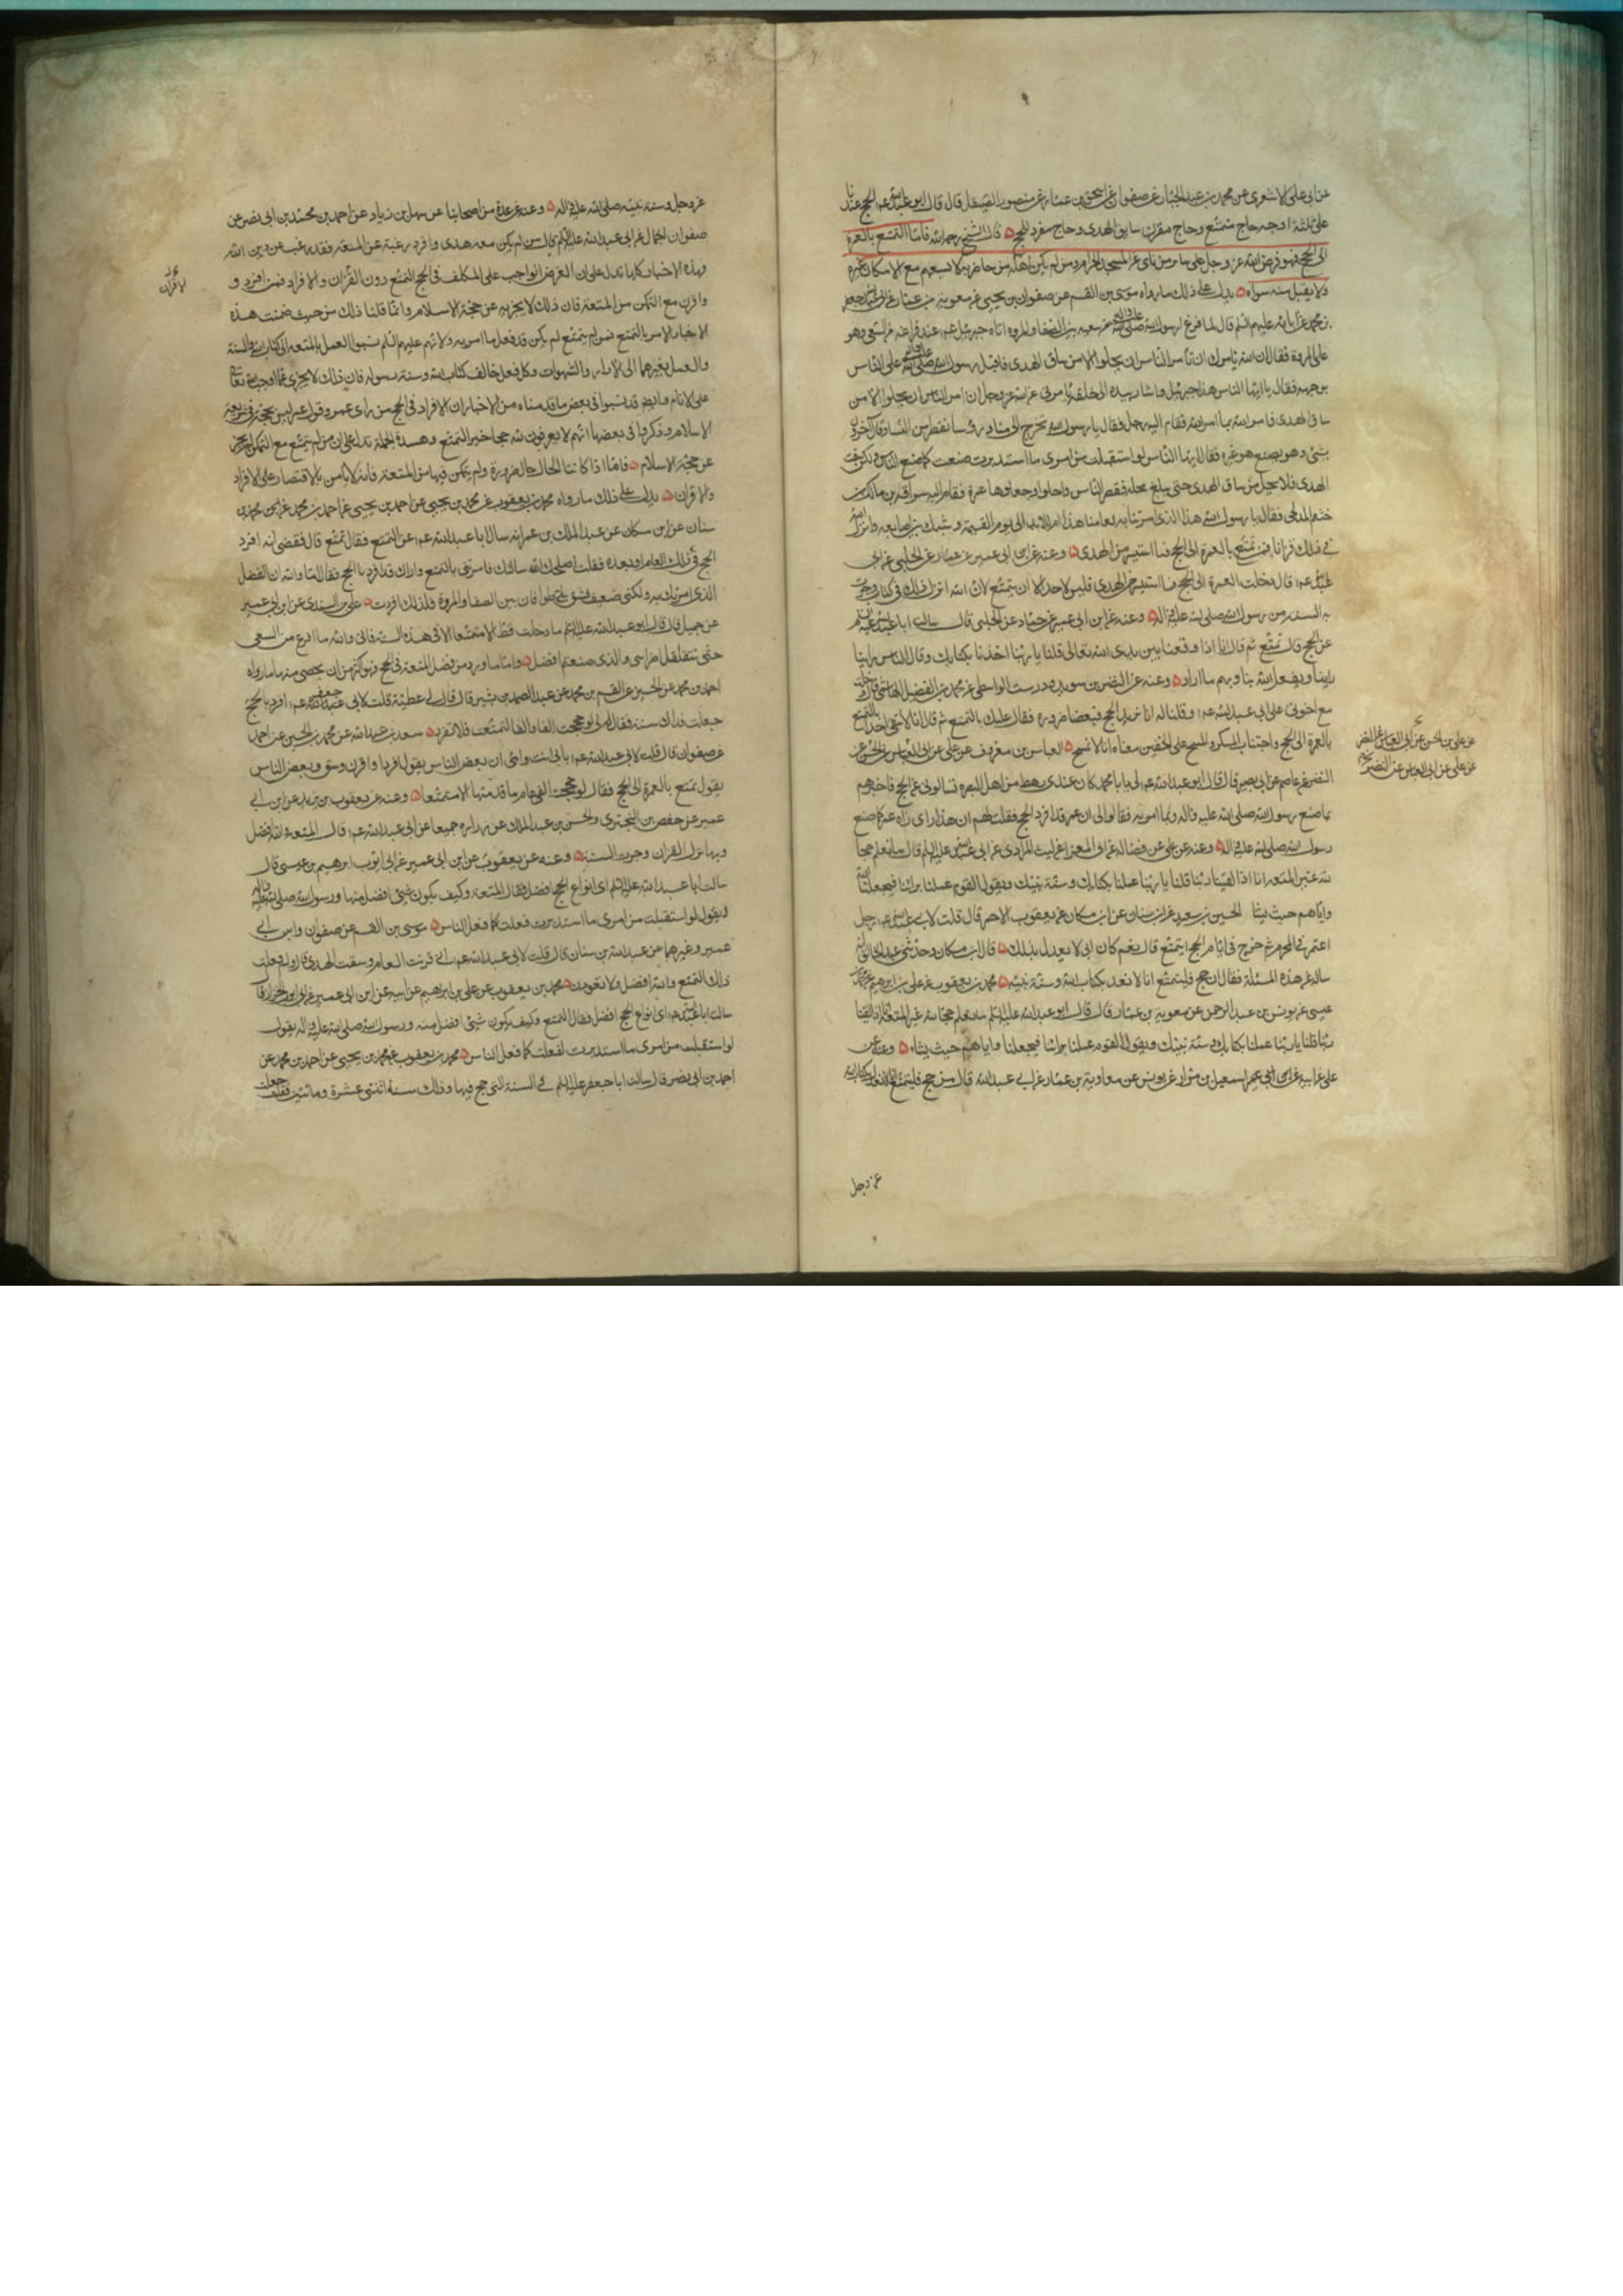 عن ابى على الاشعرى عن محمد بن عبد الجبار عن صفوان عن اسحق بن عمار عن منصور الصيقل قال قال ابو عبد الله عم الحج عندنا
على ثلثة اوجه حاج متمتع وحاج مقرن سايق الهدى وحاج مفرد للحج قال الشيخ رحمه الله فاما التمتع بالعمرة
الى الحج فهو فرض الله عز وجل على ساير من ناى عن المسجد الحرام ومن لم يكن اهله من حاضريه لا يسعهم مع الامكان غيره
ولا يقبل منه سواه يدل على ذلك ما رواه موسى بن القسم عن صفوان بن يحيى عن معوية بن عمار عن ابى عبد الله جعفر
بن محمد عن ابائه عليهم السلم قال لما فرغ رسول الله صلى الله عليه واله من سعيه بين الصفا والمروة اتاه جبرئيل عم عند فراغه من السعى وهو
على المروة فقال ان الله يامرك ان تامر الناس ان يحلوا الا من ساق الهدى فاقبل رسول الله صلى الله عليه واله على الناس
بوجهه فقال يا ايها الناس هذا جبرئيل واشار بيده الى خلفه يامرنى عن الله عز وجل ان امر الناس ان يحلوا الا من
ساق الهدى فامرهم بما امر الله فقام اليه رجل فقال يا رسول الله نخرج الى منا ورؤسنا تقطر من النساء وقال اخرون
يامر بشئ وهو يصنع هو غيره فقال يا ايها الناس لو استقبلت من امرى ما استدبرت صنعت كما صنع الناس ولكن سقت
الهدى فلا يحل من ساق الهدى حتى يبلغ محله فقصر الناس واحلوا وجعلوها عمرة فقام اليه سراقة بن مالك بن
جعشم المدلجى فقال يا رسول الله هذا الذى امرتنا به لعامنا هذا ام للابد الى يوم القيمة وشبك بين اصابعه وانزل الله
فى ذلك قرانا فمن تمتع بالعمرة الى الحج فما استيسر من الهدى وعنه عن ابن ابى عمير عن حماد عن الحلبى عن ابى
عبد الله عم قال دخلت العمرة الى الحج فما استيسر من الهدى فليس لاحد الا ان يتمتع لان الله انزل ذلك فى كتابه وجرت
به السنة من رسول الله صلى الله عليه واله وعنه عن ابن ابى عمير عن حماد عن الحلبى قال سالت ابا عبد الله عليه السلم
عن الحج قال تمتع ثم قال انا اذا وقفنا بين يدى الله تعالى قلنا يا ربنا اخذنا بكتابك وقال الناس راينا
راينا ويفعل الله بنا وبهم ما اراد وعنه عن النضر بن سويد عن درست الواسطى عن محمد بن الفضل الهاشمى قال دخلت
مع اخوتى على ابى عبد الله عم وقلنا له انا نريد الحج فبعضنا صرورة فقال عليك بالتمتع ثم قال انا لا نتقى احدا بالتمتع
بالعمرة الى الحج واجتناب المسكر والمسح على الخفين معناه انا لا نمسح العباس بن معروف عن على عن ابى العباس بن الحسن عن
النضر عن عاصم عن ابى بصير قال قال ابو عبد الله عم لى يا با محمد كان عندى رهط من اهل البصرة فسالونى عن الحج فاخبرتهم
بما صنع رسول الله صلى الله عليه واله وبما امر به فقالوا لى ان عمر قد افرد الحج فقلت لهم ان هذا راى راه عمر كما صنع
رسول الله صلى الله عليه واله وعنه عن على عن فضالة عن ابى المعزا عن ليث المرادى عن ابى عبد الله عليه السلم قال ما نعلم حجا
لله غير المتعة انا اذا لقينا ربنا قلنا يا ربنا عملنا بكتابك وسنة نبيك ويقول القوم عملنا براينا فيجعلنا الله
واياهم حيث يشا الحسين بن سعيد عن ابن سنان عن ابن مسكان عن يعقوب الاحمر قال قلت لابى عبد الله عم رجل
اعتمر فى المحرم ثم خرج فى ايام الحج ايتمتع قال نعم كان ابى لا يعدل بذلك قال ابن مسكان وحدثنى عبد الخالق انه
ساله عن هذه المسئلة فقال ان حج فليتمتع انا لا نعدل بكتاب الله وسنة نبيه محمد بن يعقوب عن على بن ابراهيم عن محمد بن
عيسى عن يونس بن عبد الرحمن عن معوية بن عمار قال قال ابو عبد الله عليه السلم ما نعلم حجا لله غير المتعة انا اذا لقينا
ربنا قلنا يا ربنا عملنا بكتابك وسنة نبيك ويقول القوم عملنا براينا فيجعلنا واياهم حيث يشاء وعنه عن
على عن ابيه عن ابن ابى عمير اسمعيل بن مرار عن يونس عن معاوية بن عمار عن ابى عبد الله قال من حج فليتمتع انا لا نعدل بكتاب الله
عن على بن الحسن عن ابى العباس عن النضر
عن على عن ابى العباس عن النضر
عز وجل
عز وجل وسنة نبيه صلى الله عليه واله وعنه عن عدة من اصحابنا عن سهل بن زياد عن احمد بن محمد بن ابى نصر عن
صفوان الجمال عن ابى عبد الله عليه السلم قال من لم يكن معه هدى وافرد رغبة عن المتعة فقد رغب عن دين الله
وهذه الاخبار كلها تدل على ان الفرض الواجب على المكلف فى الحج التمتع دون القران والافراد فمن افرد و
واقرن مع التمكن من المتعة فان ذلك لا يجزيه عن حجة الاسلام وانما قلنا ذلك من حيث ضمنت هذه
الاخبار الامر بالتمتع فمن لم يتمتع لم يكن قد فعل ما امر به ولانهم عليهم السلم نسبوا العمل بالمتعة الى كتاب الله والسنة
والعمل بغيرهما الى الاراء والشهوات وكل فعل خالف كتاب الله وسنة رسوله فان ذلك لا يجزى عما اوجبه الله تعالى
على الانام وايضا قد نسبوا فى بعض ما قدمناه من الاخبار ان الافراد فى الحج من راى عمر وقول عمر ليس بحجة فى شريعة
الاسلام وذكروا فى بعضها انهم لا يعرفون لله حجا غير التمتع وهذه الجملة تدل على ان من لم يتمتع مع التمكن لم يجز
عن حجة الاسلام فاما اذا كانت الحال حال ضرورة ولم يتمكن فيها من المتعة فانه لا باس بالاقتصار على الافراد
والاقران يدل على ذلك ما رواه محمد بن يعقوب عن محمد بن يحيى عن احمد بن يحيى عن احمد بن محمد عن ابن محمد بن
سنان عن ابن مسكان عن عبد الملك بن عمرو انه سال ابا عبد الله عم عن التمتع فقال تمتع قال فقضى انه افرد
الحج فى ذلك العام او بعده فقلت اصلحك الله سالتك فامرتنى بالتمتع واراك قد افردت الحج فقال اما والله ان الفضل
الذى امرتك به ولكنى ضعيف فشق على طوافان بين الصفا والمروة فلذلك افردت على بن السندى عن ابن ابى عمير
عن جميل قال قال ابو عبد الله عليه السلم ما دخلت قط الا متمتعا الا فى هذه السنة فانى والله ما افرغ من السعى
حتى تتقلقل اضراسى والذى صنعتم افضل واما ما ورد من فضل المتعة فى الحج فهو اكثر من ان يحصى منها ما رواه
احمد بن محمد عن الحسين عن القسم بن محمد عن عبد الصمد بن بشير قال قال لى عطية قلت لابى جعفر عم افرد بالحج
جعلت فداك سنة فقال لى لو حججت الفا والفا لتمتعت فلا تفرد سعد بن عبد الله عن محمد بن الحسين عن احمد
عن صفوان قال قلت لابى عبد الله عم بابى انت وامى ان بعض الناس يقول اقرن وسق وبعض الناس
يقول تمتع بالعمرة الى الحج فقال لو حججت الفى عام ما قدمتها الا متمتعا وعنه عن يعقوب بن يزيد عن ابن ابى
عمير عن حفص بن البخترى والحسن بن عبد الملك عن زرارة جميعا عن ابى عبد الله عم قال المتعة والله افضل
وبها نزل القران وجرت السنة وعنه عن يعقوب عن ابن ابى عمير عن ابى ايوب ابرهيم بن عيسى قال
سالت ابا عبد الله عليه السلم اى انواع الحج افضل فقال المتعة وكيف يكون شئ افضل منها ورسول الله صلى الله عليه واله
يقول لو استقبلت من امرى ما استدبرت فعلت كما فعل الناس موسى بن القسم عن صفوان وابن ابى
عمير وغيرهما عن عبد الله بن سنان قال قلت لابى عبد الله عم انى قرنت العام وسقت الهدى قال ولم فعلت
ذلك التمتع والله افضل ولا تعودن محمد بن يعقوب عن على بن ابراهيم عن ابيه عن ابن ابى عمير عن ابى ايوب الخزاز قال
سالت ابا عبد الله عم اى انواع الحج افضل فقال التمتع وكيف يكون شئ افضل منه ورسول الله صلى الله عليه واله يقول
لو استقبلت من امرى ما استدبرت لفعلت كما فعل الناس محمد بن يعقوب عن محمد بن يحيى عن احمد بن محمد عن
احمد بن ابى نصر قال سالت ابا جعفر عليه السلم فى السنة التى حج فيها وذلك سنة اثنتى عشرة ومائتين فقلت جعلت